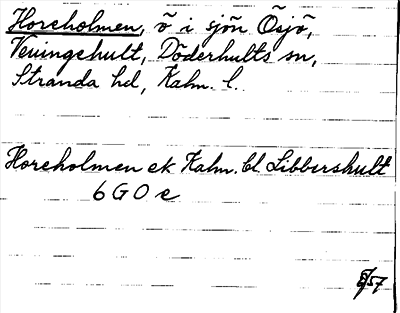 Horeholmen, ö i sjön Ösjö,
Veningehult, Döderhults sn,
Stranda hd, Kalm. l.
Horeholmen ek Kalm. bl. Libbershult
6 G O e